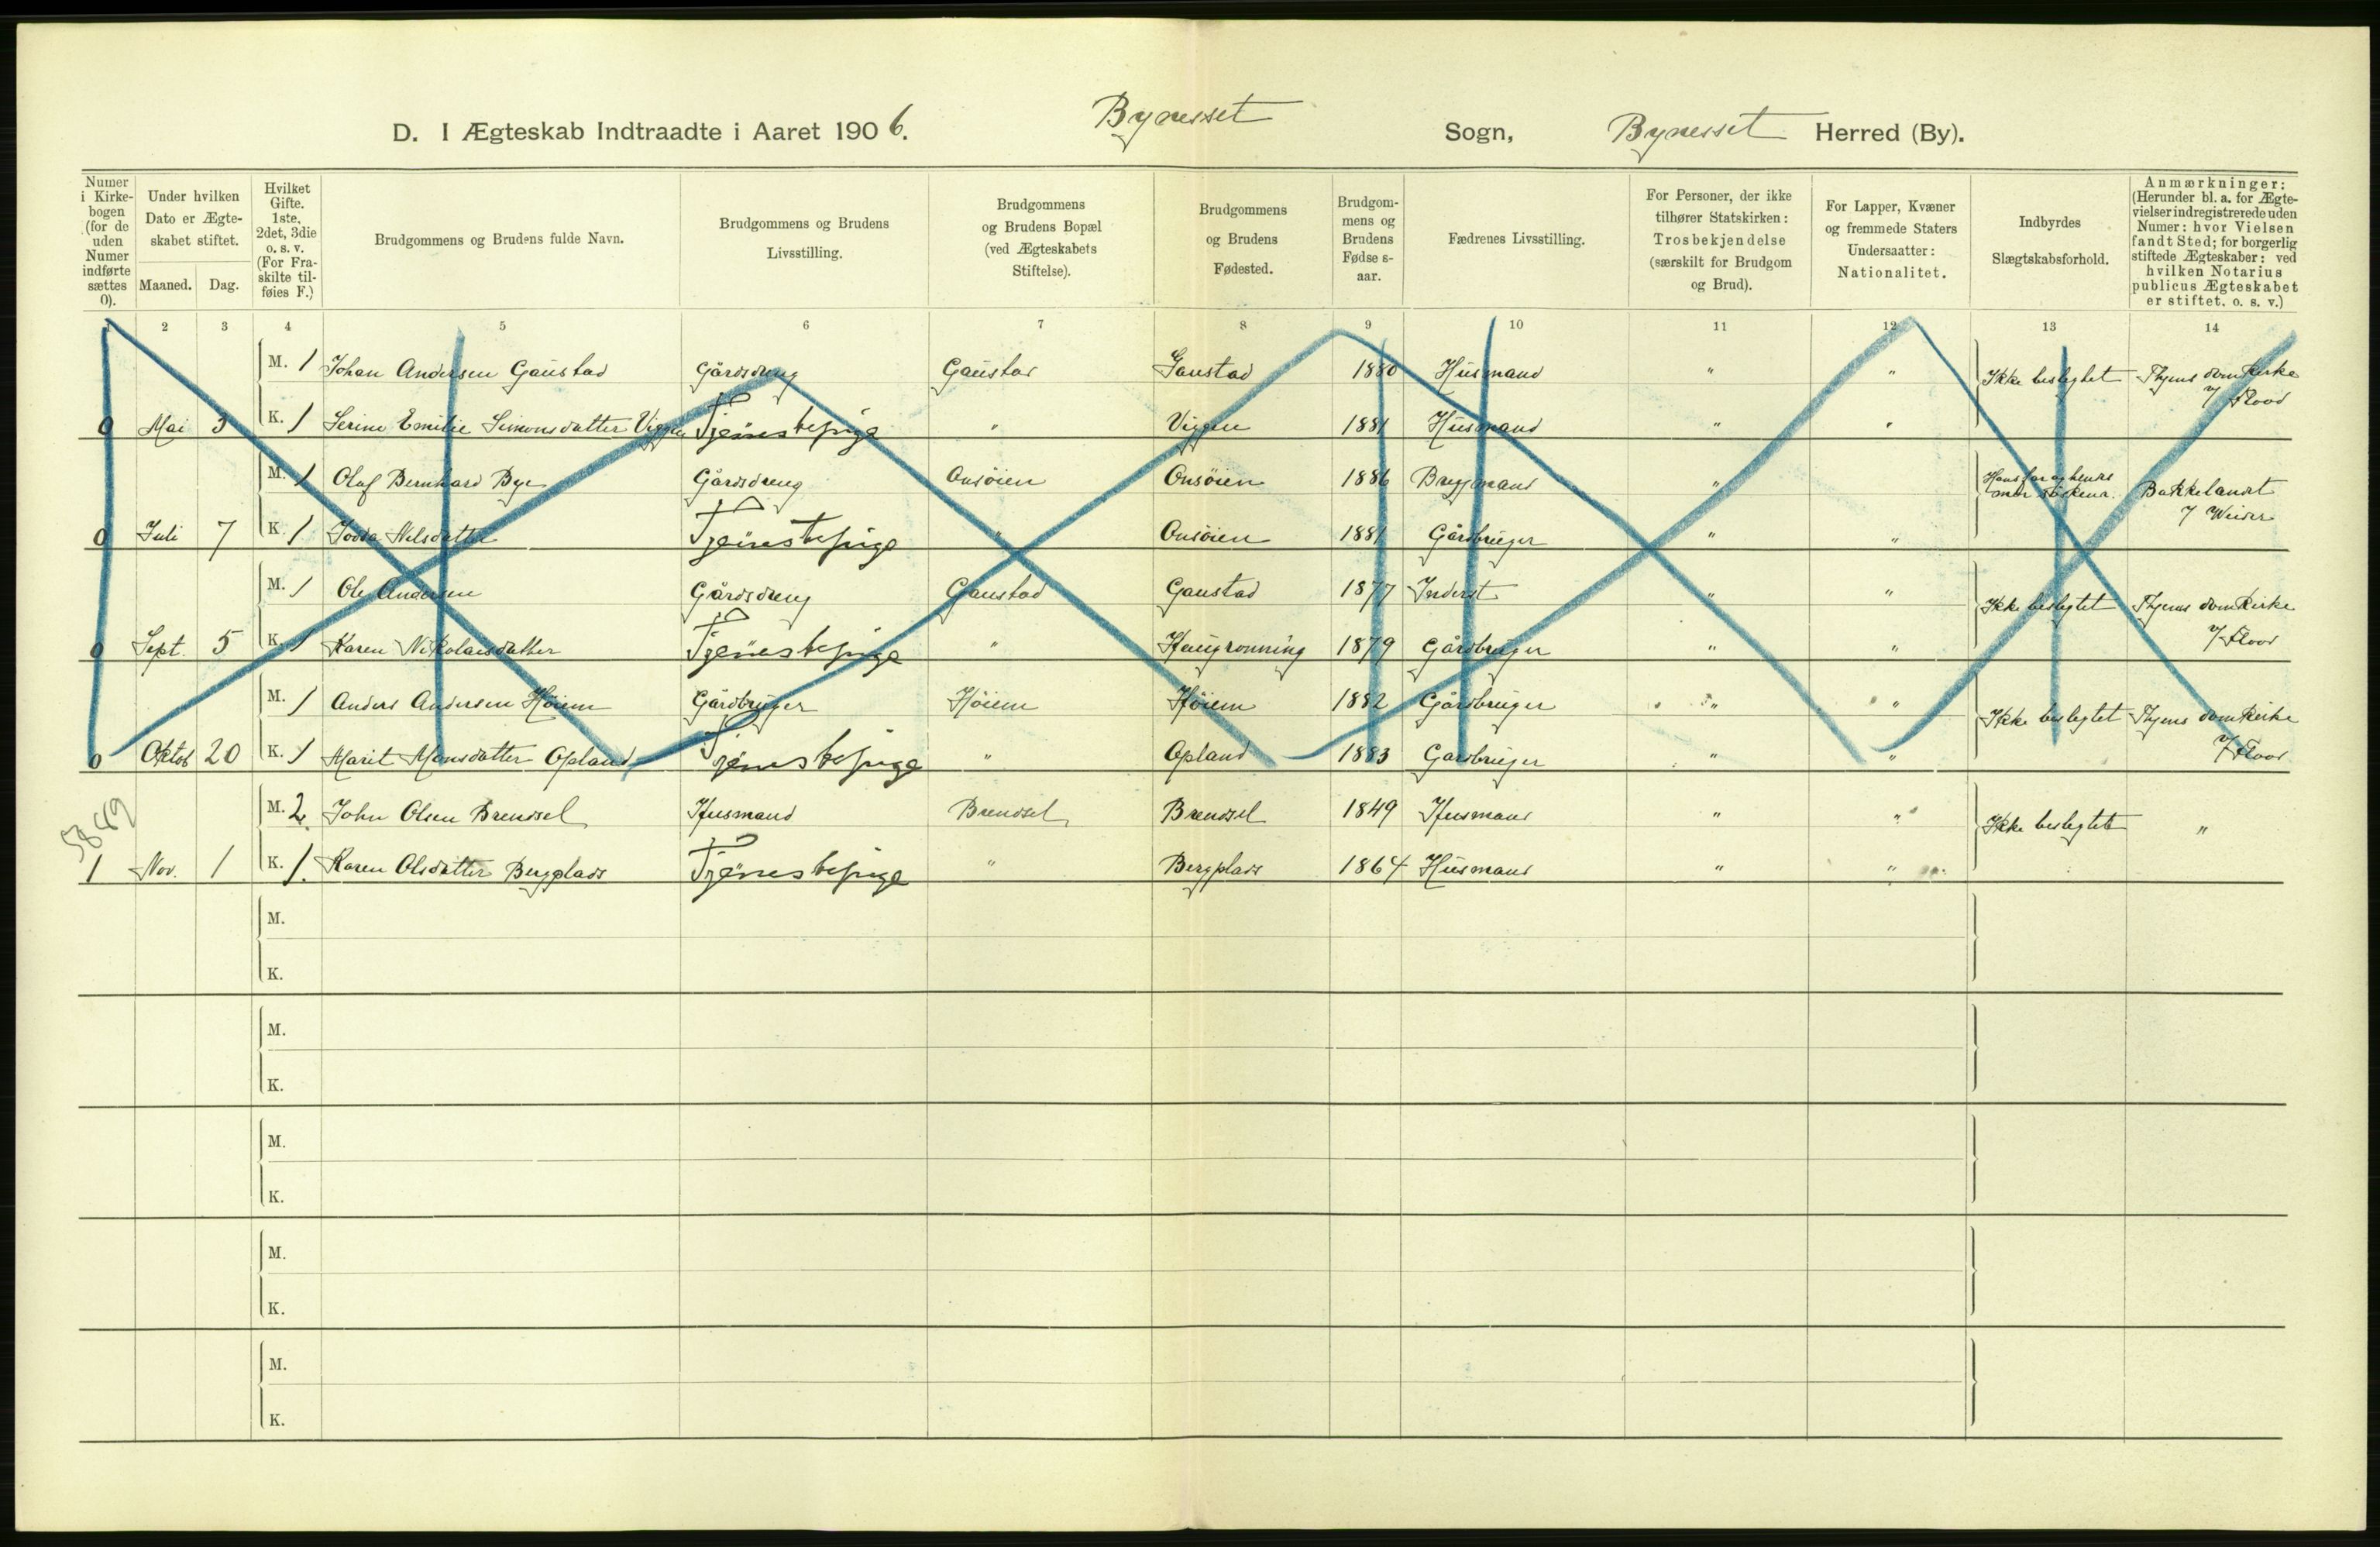 D. I Ægteskab Indtraadte i Aaret 1906. Bynesset Sogn, Bynesset Herred (By).
Numer i Kirkebogen (for de uden Numer indførte sættes 0).
Under hvilken Dato er Ægteskabet stiftet.
Maaned. Dag.
Hvilket Gifte. 1ste, 2det, 3die o. s. v. (For Fraskilte tilføies F.)
Brudgommens og Brudens fulde Navn.
Brudgommens og Brudens Livsstilling.
Brudgommens og Brudens Bopæl (ved Ægteskabets Stiftelse).
Brudgommens og Brudens Fødested.
Brudgommens og Brudens Fødselsaar.
Fædrenes Livsstilling.
For Personer, der ikke tilhører Statskirken: Trosbekjendelse (særskilt for Brudgom og Brud).
For Lapper, Kvæner og fremmede Staters Undersaatter: Nationalitet.
Indbyrdes Slægtskabsforhold.
Anmærkninger: (Herunder bl. a. for Ægtevielser indregistrerede uden Numer: hvor Vielsen fandt Sted; for borgerlig stiftede Ægteskaber: ved hvilken Notarius publicus Ægteskabet er stiftet. o. s. v.)
1 2 3 4 5 6 7 8 9 10 11 12 13 14
M. 1 Johan Andersen Gaustad Gårdsdreng Gaustad Gaustad 1880 Husmand " " Ikke beslegtet Thjems domkirke
0 Mai 3 K. 1 Serine Emilie Simonsdatter Viggen Tjenestepige " Viggen 1881 Husmand " " 7/ Flood
M. 1 Oluf Bernhard Bye Gårdsdreng Onsöien Onsöien 1886 Bryggmand " Hans far og hendes mor söskend. Bakkelandet
0 Juli 7 K. 1 Nilsdatter Tjenestepige " Onsöien 1881 Gårdbruger " " 7
M. 1 Ole Andersen Gårdsdreng Gaustad Gaustad 1877 Inderst " " Ikke beslegtet Thjems domkirke
0 Sept. 5 K. 1 Karen Nikolaisdatter Tjenestepige " Haugrönning 1879 Gårdbruger " " 7/ Flood
M. 1 Anders Andersen Höiem Gårdbruger Höiem Höiem 1882 Gårdbruger " " Ikke beslegtet Thjems domkirke
0 Oktob 20 K. 1 Marit Monsdatter Opland Tjenestepige " Opland 1883 Gardbruger " " 7/ Flood
M. 2. John Olsen Brendsel Husmand Brendsel Brendsel 1849 Husmand " " Ikke beslegtet "
1 Nov. 1 K. 1. Karen Olsdatter Bergplads Tjenestepige " Bergplads 1864 Husmand " "
M.
K.
M.
K.
M.
K.
M.
K.
M.
K.